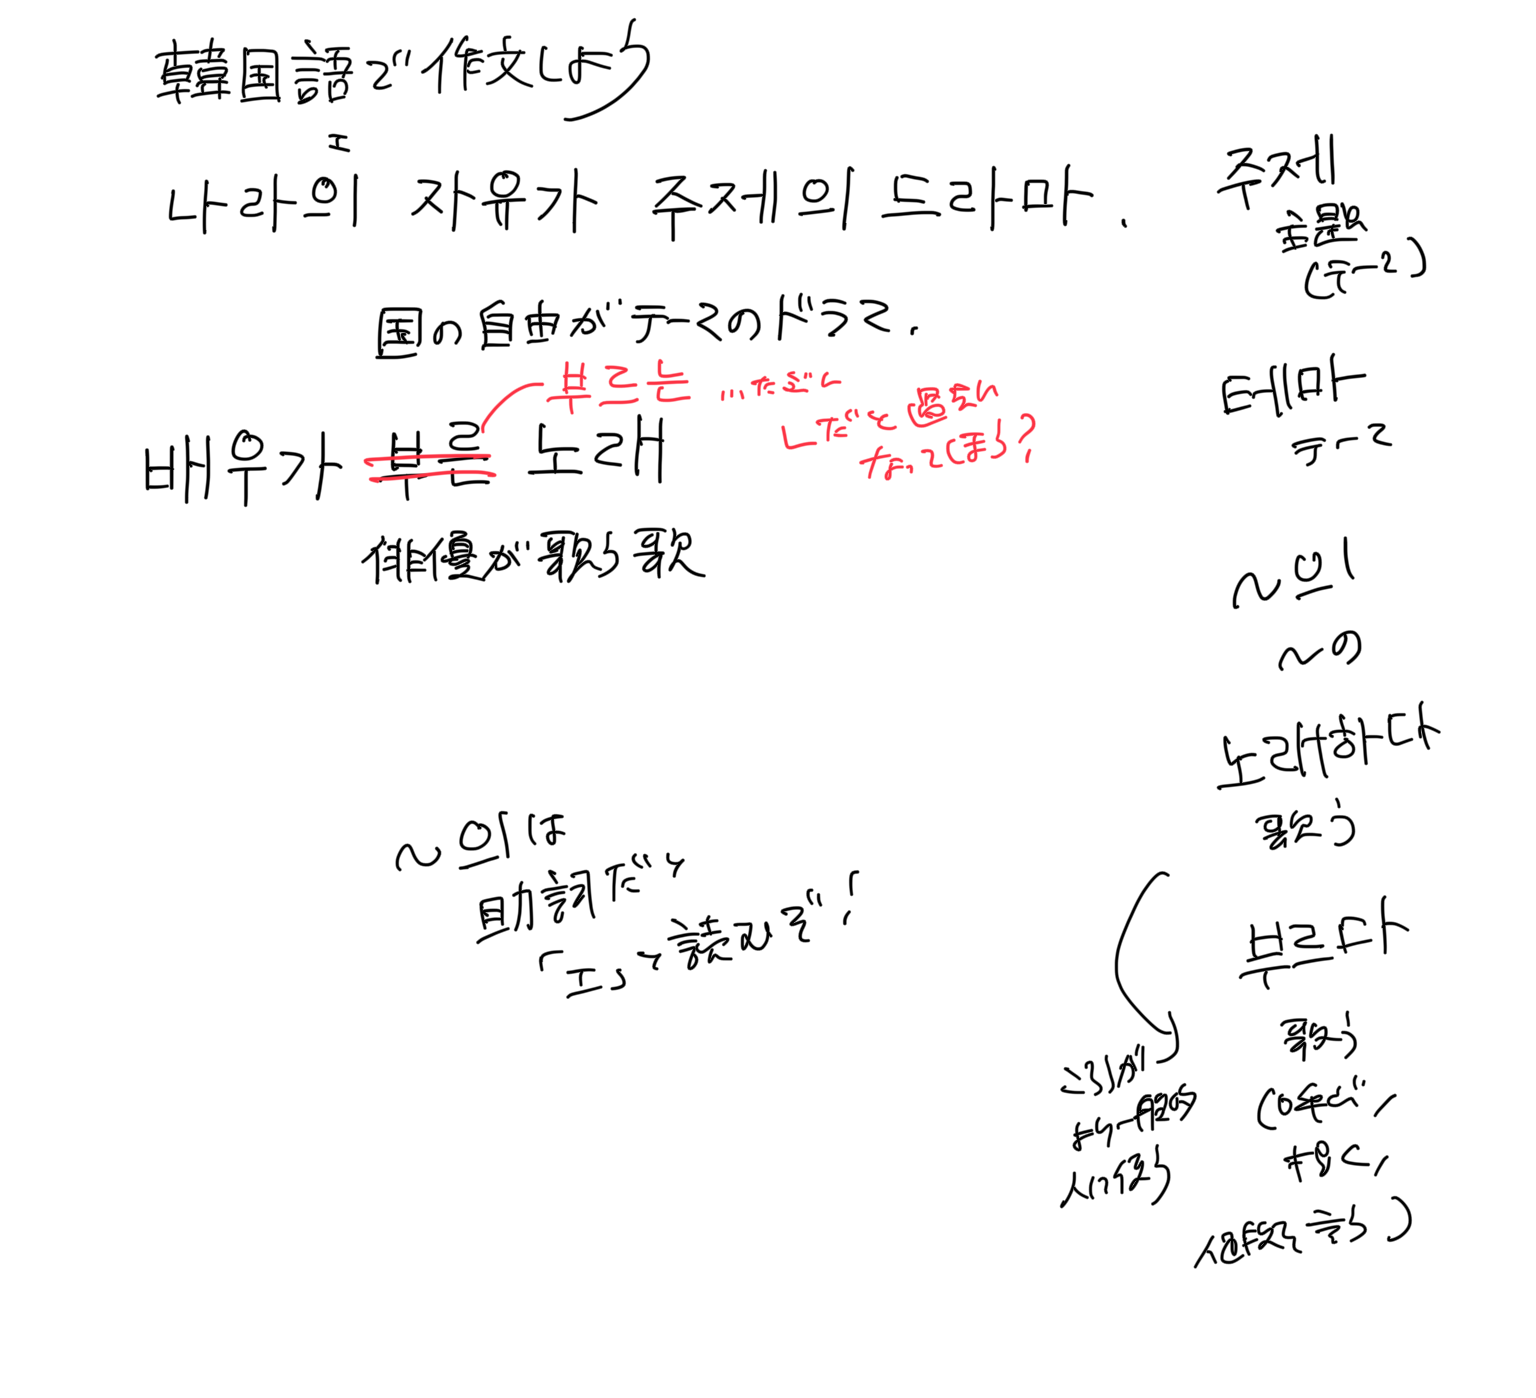 韓国語で作文しよう
エ
나라의 자유가 주제의 드라마.
国の自由がテーマのドラマ.
부르는 …ただし
ㄴだと過去に
なってしまう?
배우가 부른 노래
俳優が歌う歌
~의は
助詞だと
「エ」と読むぞ!
주제
主題
(テーマ)
테마
テーマ
~의
~の
노래하다
歌う
부르다
歌う
(呼ぶ,
招く,
値段を言う)
こっちが
より一般的
に使う